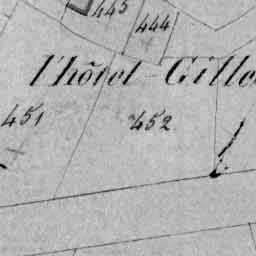 445 444
l'hôtel Gille
451 452